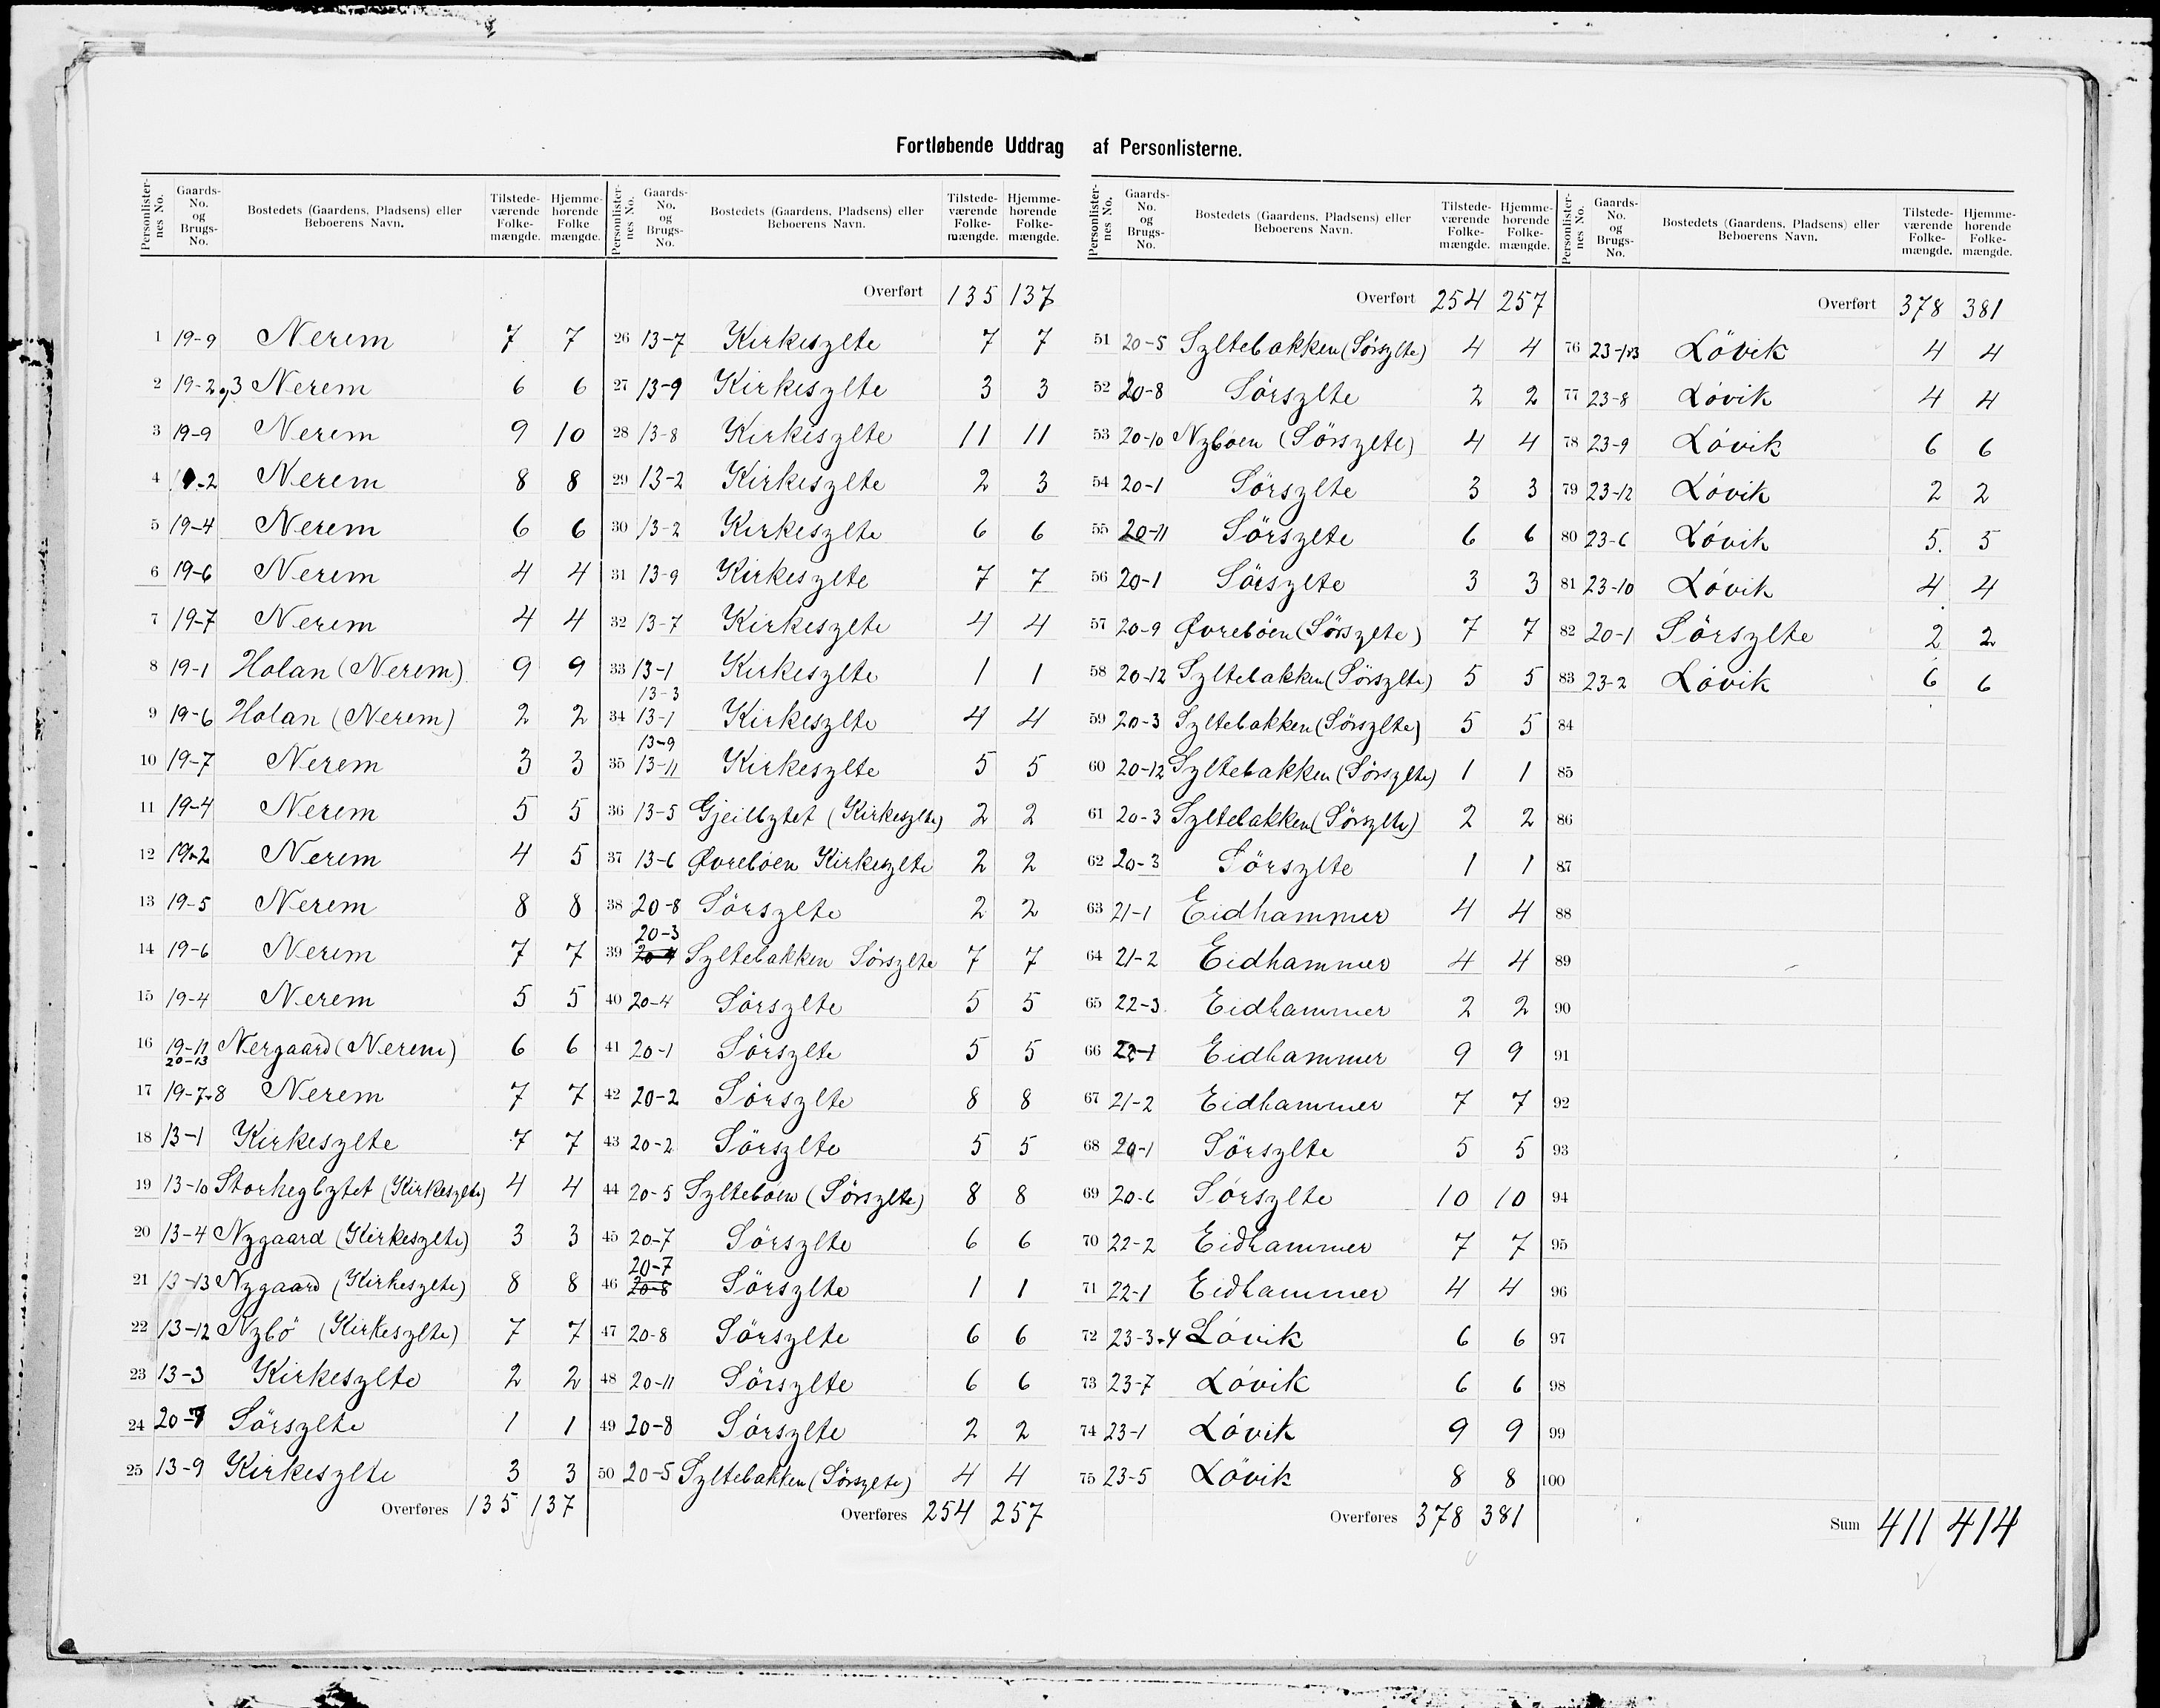 Fortløbende Uddrag af Personlisterne.
Personlister-nes No. | Gaards-No. og Brugs-No. | Bostedets (Gaardens, Pladsens) eller Beboerens Navn. | Tilstede-værende Folke-mængde. | Hjemme-hørende Folke mængde.
1 19-9 Nerem 7 7
2 19-2 og 3 Nerem 6 6
3 19-9 Nerem 9 10
4 19-2 Nerem 8 8
5 19-4 Nerem 6 6
6 19-6 Nerem 4 4
7 19-7 Nerem 4 4
8 19-1 Holan (Nerem) 9 9
9 19-6 Holan (Nerem) 2 2
10 19-7 Nerem 3 3
11 19-4 Nerem 5 5
12 19-2 Nerem 4 5
13 19-5 Nerem 8 8
14 19-6 Nerem 7 7
15 19-4 Nerem 5 5
16 19-11 20-13 Nergaard (Nerem) 6 6
17 19-7+8 Nerem 7 7
18 13-1 Kirkesylte 7 7
19 13-10 Storhegbytet (Kirkesylte) 4 4
20 13-4 Nygaard (Kirkesylte) 3 3
21 13-13 Nygaard (Kirkesylte) 8 8
22 13-12 Nybö (Kirkesylte) 7 7
23 13-3 Kirkesylte 2 2
24 20-7 Sörsylte 1 1
25 13-9 Kirkesylte 3 3
Overføres 135 137
Personlister-nes No. | Gaards-No. og Brugs-No. | Bostedets (Gaardens, Pladsens) eller Beboerens Navn. | Tilstede-værende Folke-mængde. | Hjemme-hørende Folke-mængde.
Overført 135 137
26 13-7 Kirkesylte 7 7
27 13-9 Kirkesylte 3 3
28 13-8 Kirkesylte 11 11
29 13-2 Kirkesylte 2 3
30 13-2 Kirkesylte 6 6
31 13-9 Kirkesylte 7 7
32 13-7 Kirkesylte 4 4
33 13-1 Kirkesylte 1 1
34 13-3 13-1 Kirkesylte 4 4
35 13-9 13-11 Kirkesylte 5 5
36 13-5 Gjeilbytet (Kirkesylte) 2 2
37 13-6 Øvreböen Kirkesylte 2 2
38 20-8 Sörsylte 2 2
39 20-3 20-4 Syltebakken Sörsylte 7 7
40 20-4 Sörsylte 5 5
41 20-1 Sörsylte 5 5
42 20-2 Sörsylte 8 8
43 20-2 Sörsylte 5 5
44 20-5 Sylteböen (Sörsylte) 8 8
45 20-7 Sörsylte 6 6
46 20-7 20-8 Sörsylte 1 1
47 20-8 Sörsylte 6 6
48 20-11 Sörsylte 6 6
49 20-8 Sörsylte 2 2
50 20-5 Syltebakken (Sörsylte) 4 4
Overføres 254 257
Personlister-nes No. | Gaards-No. og Brugs-No. | Bostedets (Gaardens, Pladsens) eller Beboerens Navn. | Tilstede-værende Folke-mængde. | Hjemme-hørende Folke-mængde.
Overført 254 257
51 20-5 Syltebakken (Sörsylte) 4 4
52 20-8 Sörsylte 2 2
53 20-10 Nyböen (Sörsylte) 4 4
54 20-1 Sörsylte 3 3
55 20-11 Sörsylte 6 6
56 20-1 Sörsylte 3 3
57 20-9 Øvreböen (Sörsylte) 7 7
58 20-12 Syltebakken (Sörsylte) 5 5
59 20-3 Syltebakken (Sörsylte) 5 5
60 20-12 Syltebakken (Sörsylte) 1 1
61 20-3 Syltebakken (Sörsylte) 2 2
62 20-3 Sörsylte 1 1
63 21-1 Eidhammer 4 4
64 21-2 Eidhammer 4 4
65 22-3 Eidhammer 2 2
66 22-1 Eidhammer 9 9
67 21-2 Eidhammer 7 7
68 20-1 Sörsylte 5 5
69 20-6 Sörsylte 10 10
70 22-2 Eidhammer 7 7
71 22-1 Eidhammer 4 4
72 23-3+4 Lövik 6 6
73 23-7 Lövik 6 6
74 23-1 Lövik 9 9
75 23-5 Lövik 8 8
Overføres 378 381
Personlister-nes No. | Gaards-No. og Brugs-No. | Bostedets (Gaardens, Pladsens) eller Beboerens Navn. | Tilstede-værende Folke-mængde. | Hjemme-hørende Folke-mængde.
Overført 378 381
76 23-1+3 Lövik 4 4
77 23-8 Lövik 4 4
78 23-9 Lövik 6 6
79 23-12 Lövik 2 2
80 23-6 Lövik 5 5
81 23-10 Lövik 4 4
82 20-1 Sörsylte 2 2
83 23-2 Lövik 6 6
84
85
86
87
88
89
90
91
92
93
94
95
96
97
98
99
100
Sum 411 414